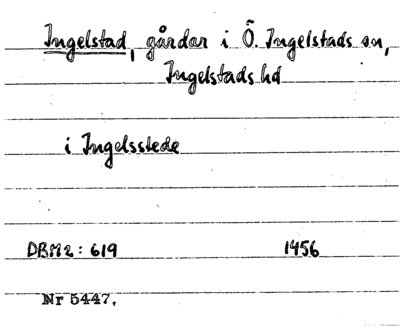 Ingelstad, gårdar i Ö. Ingelstads sn,
Ingelstads hd
i Ingelsstede
DBM2: 619 1456
Nr 5447.